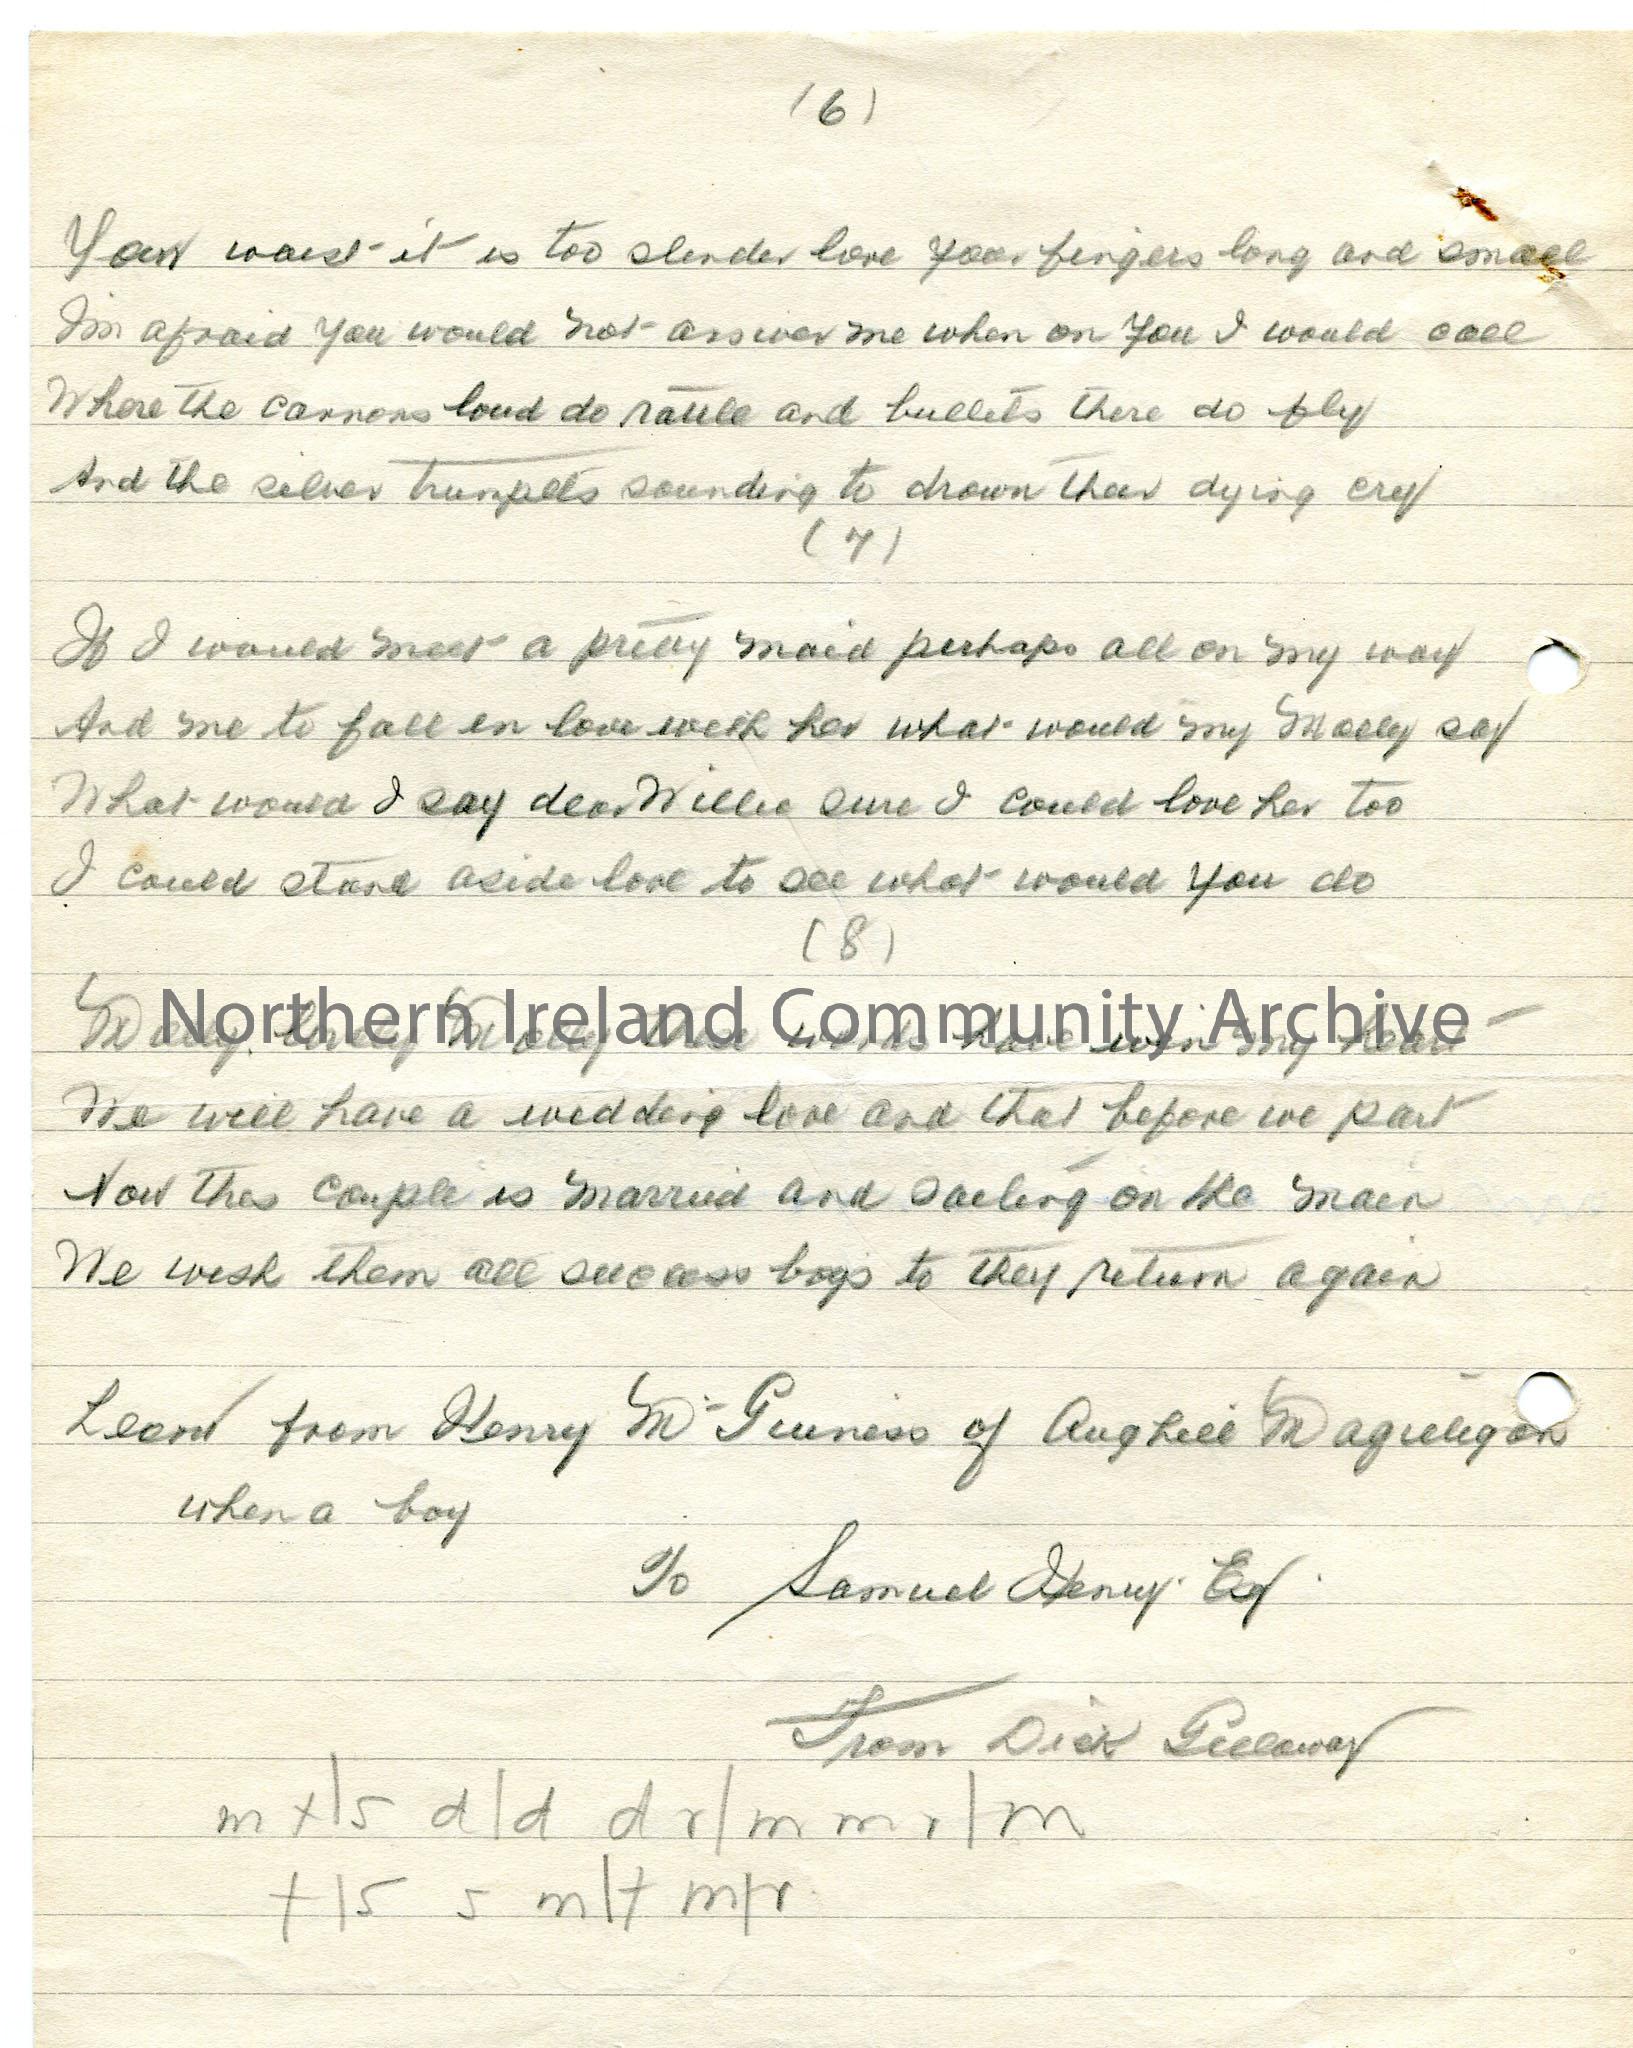 (6)
Your waist it is too slender love your fingers long and small
I'm afraid you would not answer me when on you I would call
Where the cannons loud do rattle and bullets there do fly
And the silver trumpets sounding to drown their dying cry
(7)
If I would meet a pretty maid perhaps all on my way
And me to fall in love with her what would my Molly say
What would I say dear Willie sure I could love her too
I could stand aside love to see what would you do
(8)
Molly lovely Molly these words have won my heart
We will have a wedding love and that before we part
Now this couple is married and sailing on the main
We wish them all success boys to they return again
Northern Ireland Community Archive
Learn from Henry Mc Guiness of Aughill Magilligan
when a boy
To Samuel Henry. Esq.
From Dick Gilloway
m f|s d|d d r|m m r|m
f|s s m|f m|r